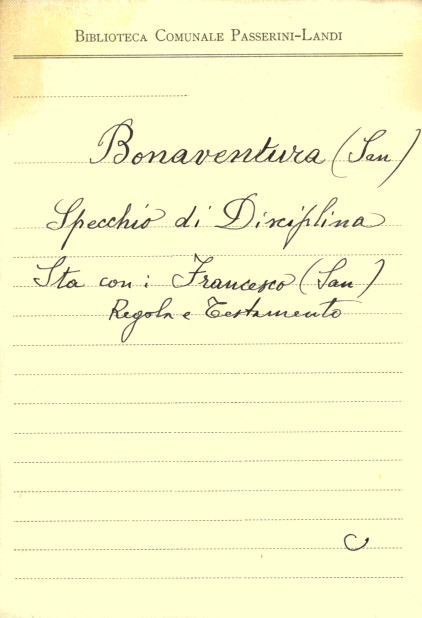 Biblioteca Comunale Passerini-Landi
Bonaventura (San)
Specchio di Disciplina
Sta con: Francesco (San)
Regola e Testamento
C